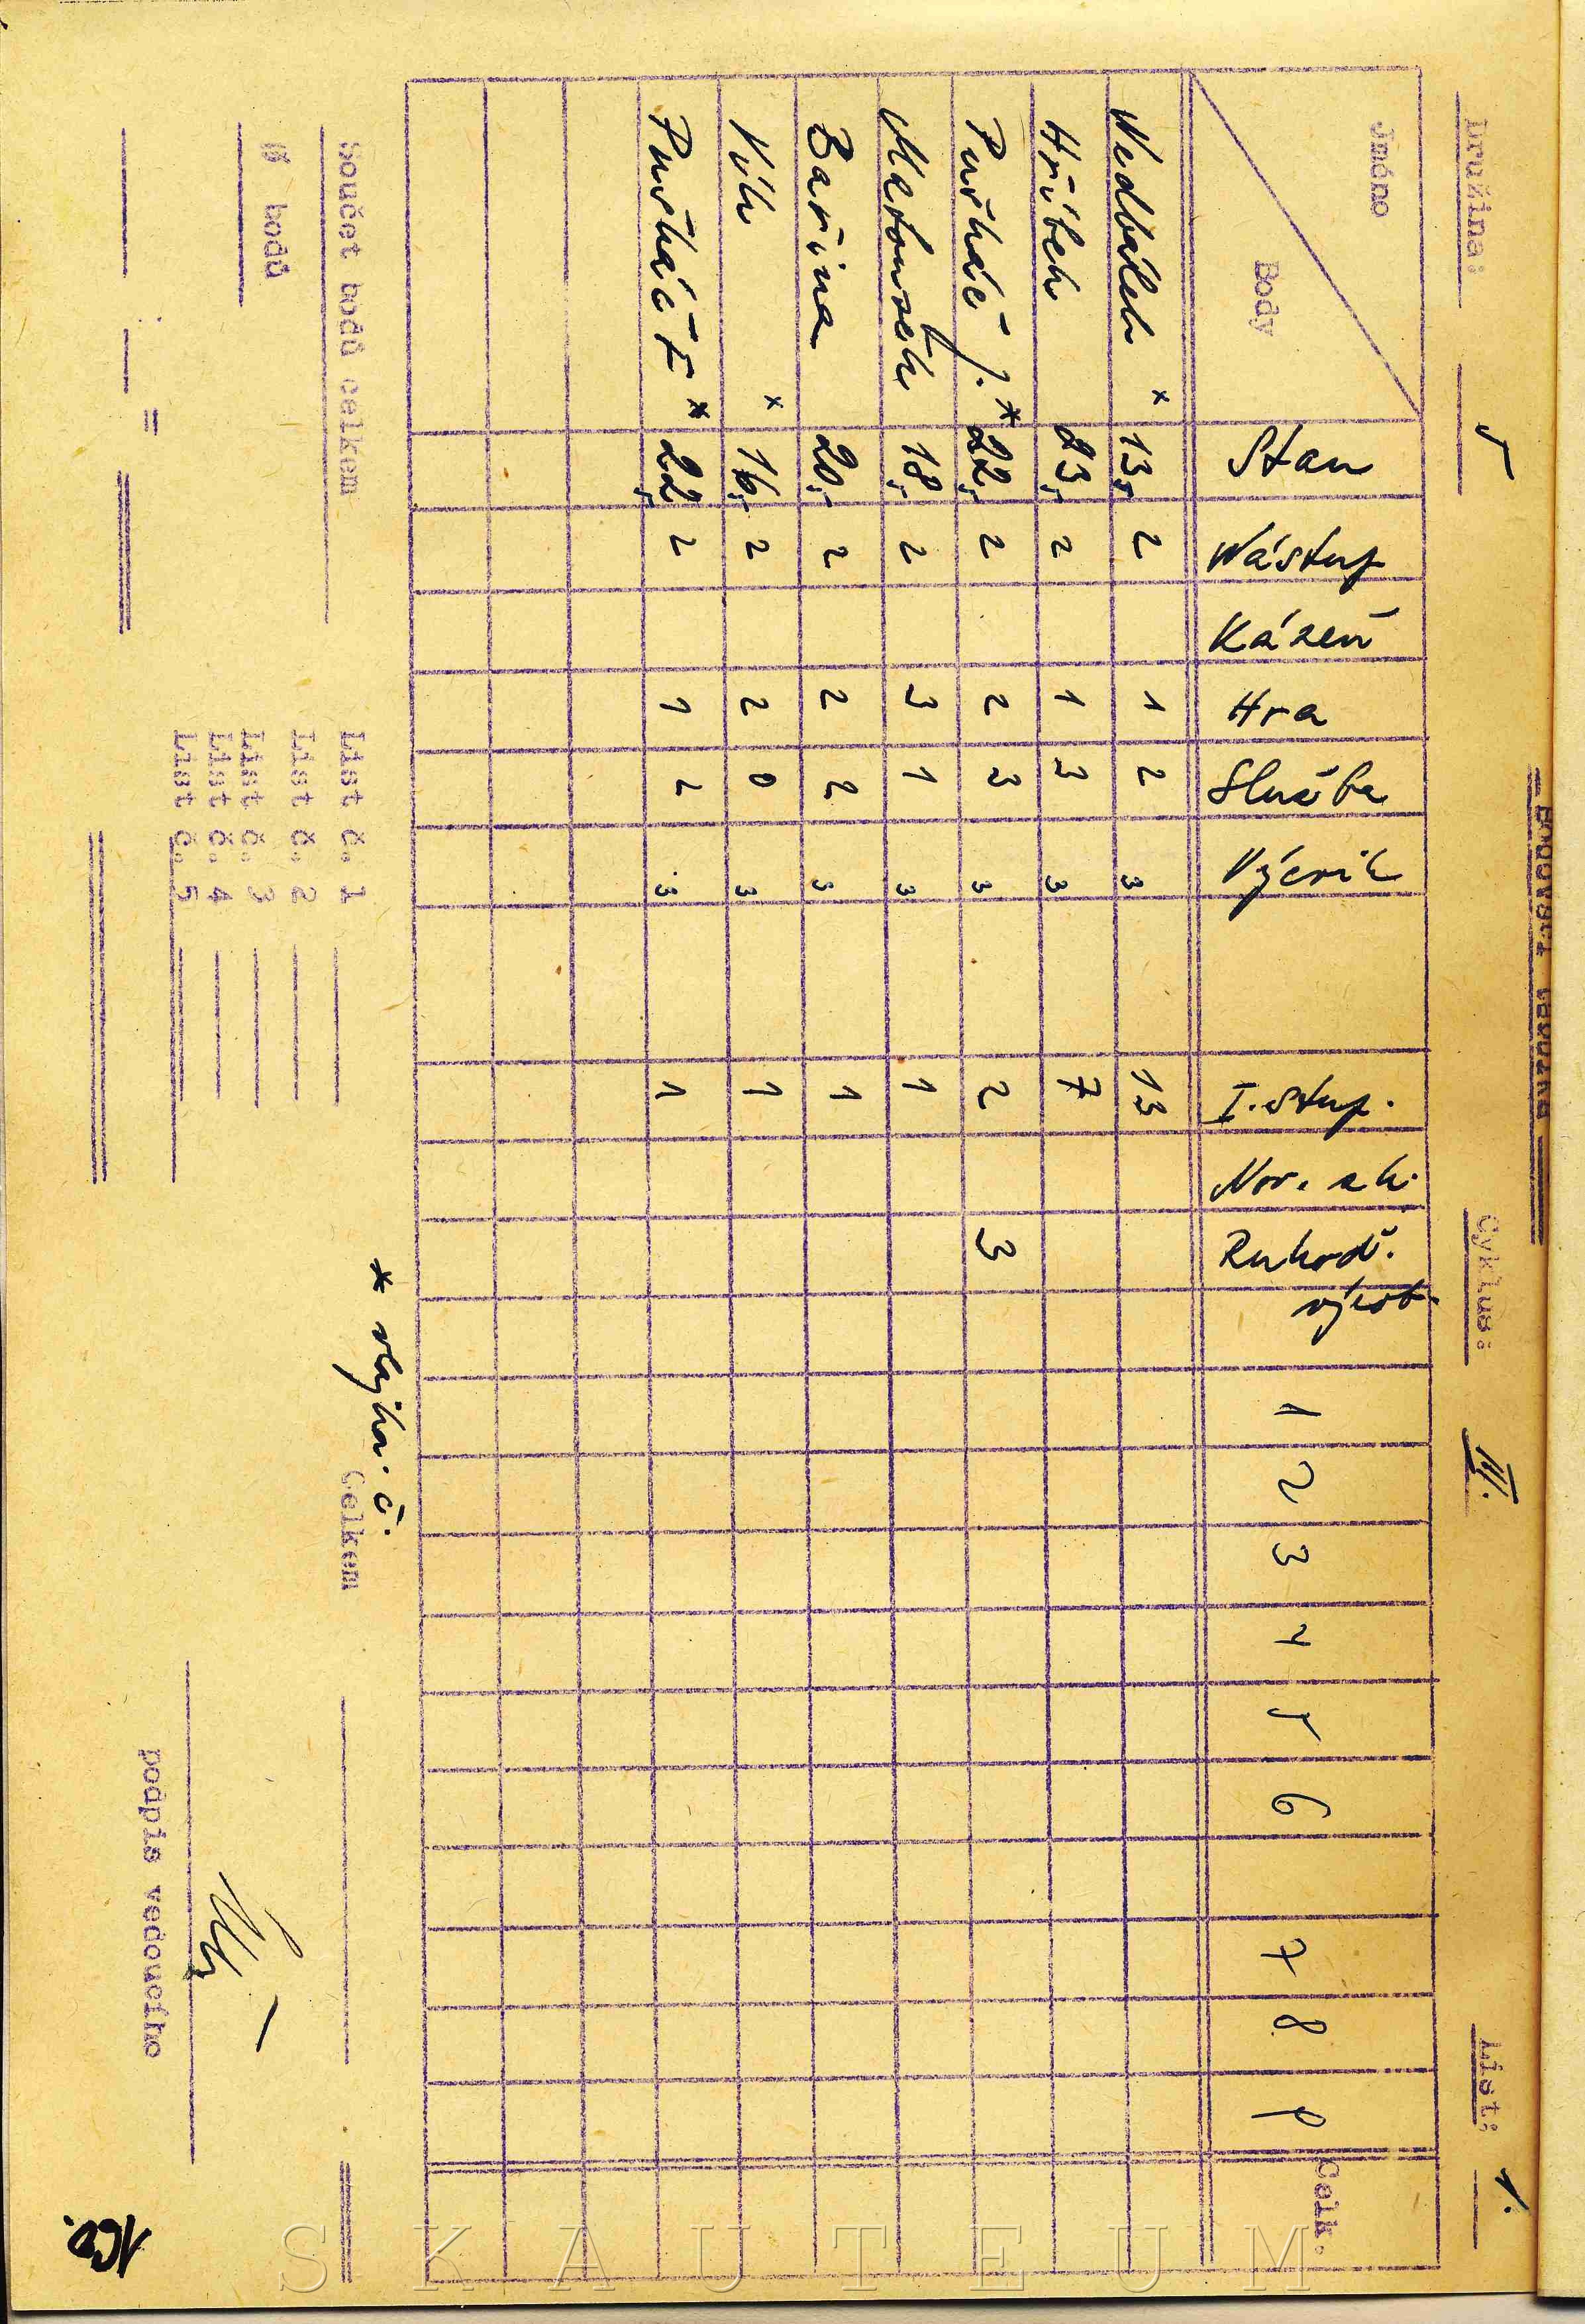 BODOVACÍ TABULKA DRUŽINY
Družina: 5 Cyklus: III. List: 1.
Jméno Body Stan Nástup Kázeň Hra Služba Výcvik I. stup. Nov. zk. Rukod. výrob. 1 2 3 4 5 6 7 8 9 Celk.
Nedbálek x 13,5 2 1 2 3 13
Hříbek 23,5 2 1 3 3 7
Purkáč J. * 22,5 2 2 3 3 2 3
Matoušek 18,5 2 3 1 3 1
Bařina 20,5 2 2 2 3 1
Vlk x 16,5 2 2 0 3 1
Purkáč F * 22,5 2 1 2 3 1
* vlajka. č.
Součet bodů celkem List č. 1 Celkem
List č. 2
Ø bodů List č. 3
List č. 4
List č. 5
podpis vedoucího
— — =
160.
SKAUTEUM